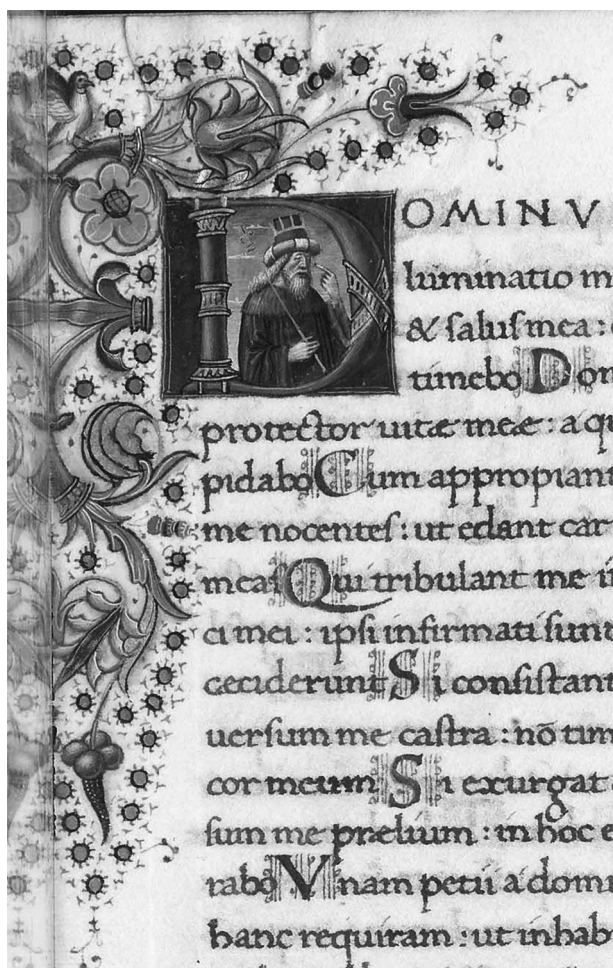 DOMINV
luminatio m
& saluſ mea :
timebo Dom
protector uitæ meæ : a qu
pidabo Cum appropiant
me nocenteſ : ut edant car
meaſ Qui tribulant me i
ci mei : ipſi infirmati ſunt
ceciderunt Si conſiſtant
uerſum me caſtra : nō tim
cor meum Si exurgat
ſum me prælium : in hoc e
rabo Vnam petii a domi
hanc requiram : ut inhab